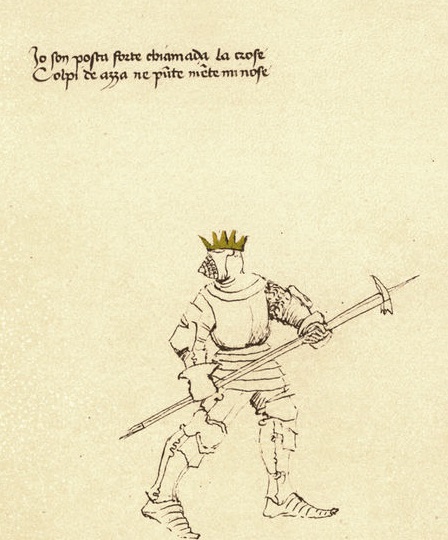 Io son posta forte chiamada la crose
Colpi de azza ne pũte niẽte mi nose